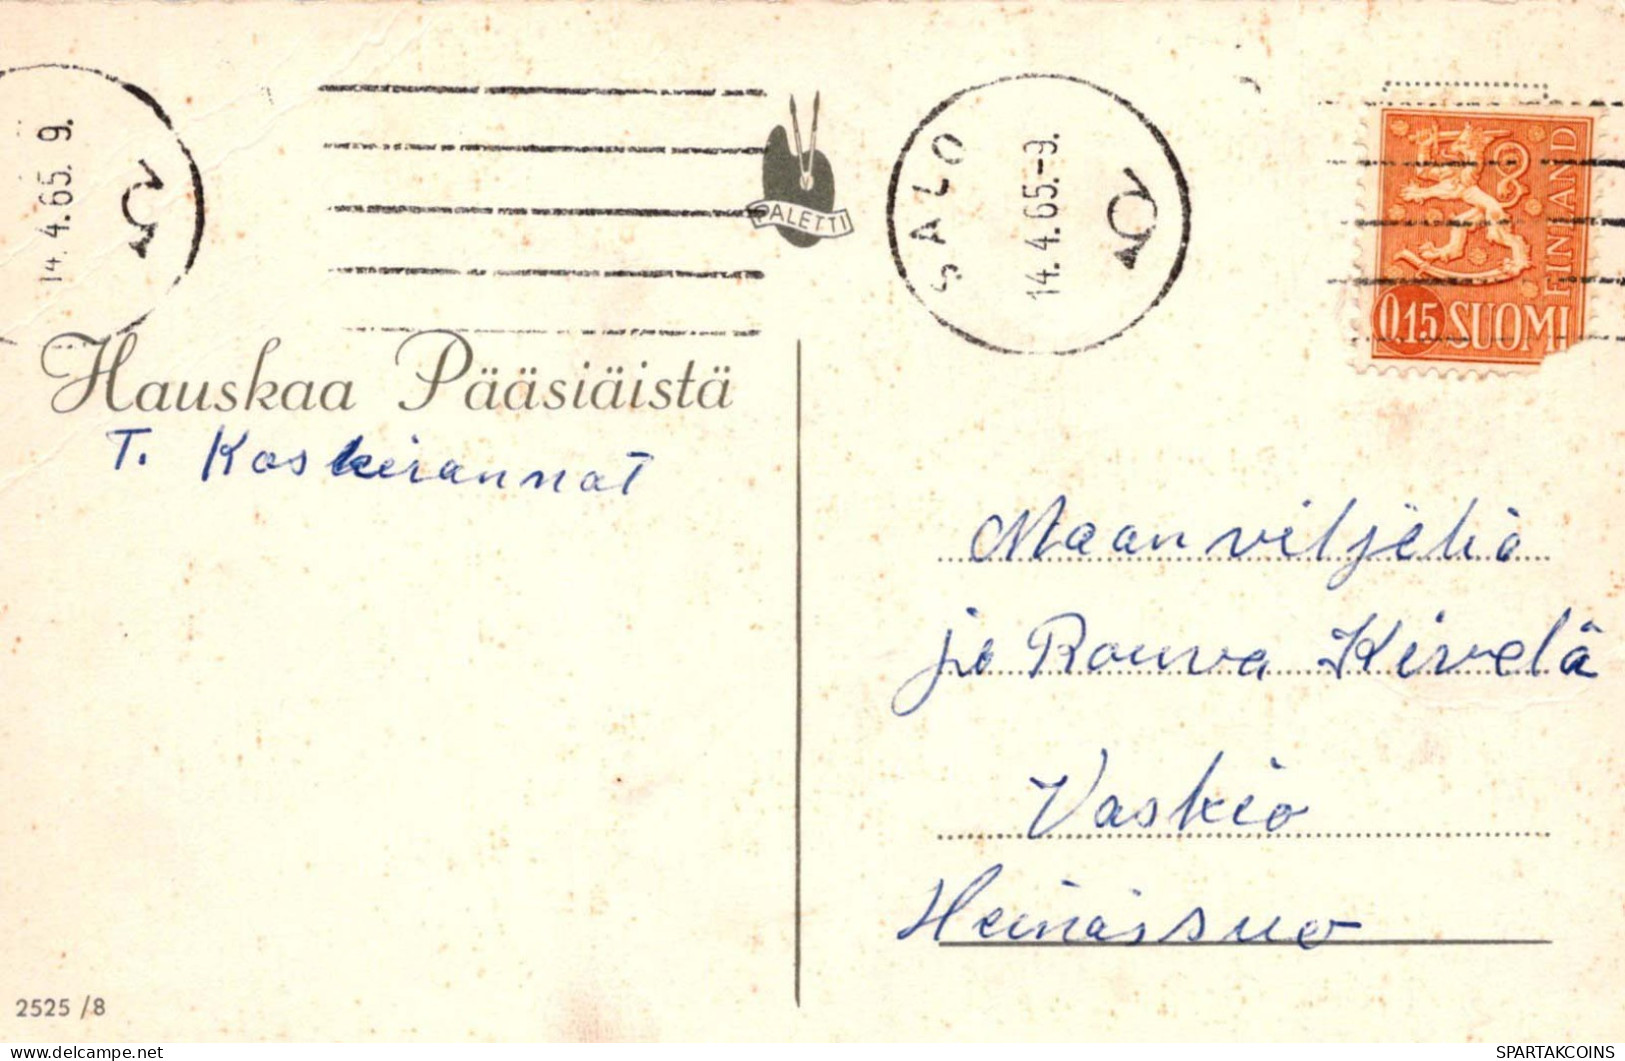 14.4.65. 9.
PALETTI
SALO
14.4.65.-9.
FINLAND
0,15 SUOMI
Hauskaa Pääsiäistä
T. Koskirannat
Maanviljeliä
ja Rouva Kivelä
Vaskio
Heinäissuo
2525 /8
delcampe.net
SPARTAKCOINS